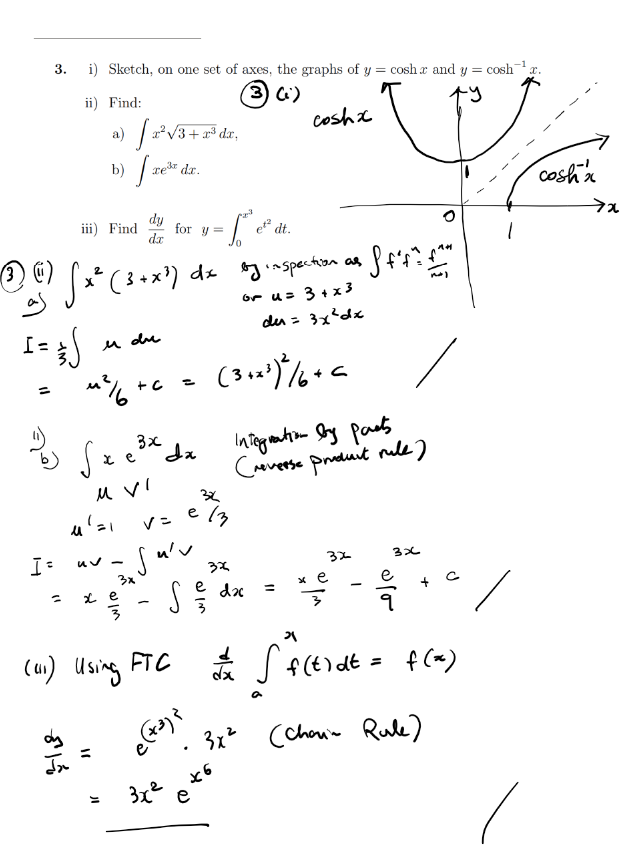 3. i) Sketch, on one set of axes, the graphs of y = cosh x and y = cosh⁻¹ x.
ii) Find:
a) ∫ x²√3 + x³ dx,
b) ∫ xe³ˣ dx.
iii) Find dy/dx for y = ∫₀^{x³} e^{t²} dt.
③ (i)
y
cosh x
1
cosh⁻¹x
0
x
1
③ (ii) ∫ x² (3 + x³) dx by inspection as ∫ f' fⁿ = fⁿ⁺¹/n+1
a) or u = 3 + x³
du = 3x² dx
I = 1/3 ∫ u du
= u²/6 + c = (3 + x³)²/6 + c
ii)
b) ∫ x e³ˣ dx Integration by parts
(reverse product rule)
u v'
u' = 1 v = e³ˣ/3
I = uv - ∫ u'v
= x e³ˣ/3 - ∫ e³ˣ/3 dx = x e³ˣ/3 - e³ˣ/9 + c
(iii) Using FTC d/dx ∫ₐˣ f(t) dt = f(x)
dy/dx = e^{(x³)²} . 3x² (Chain Rule)
= 3x² e^{x⁶}